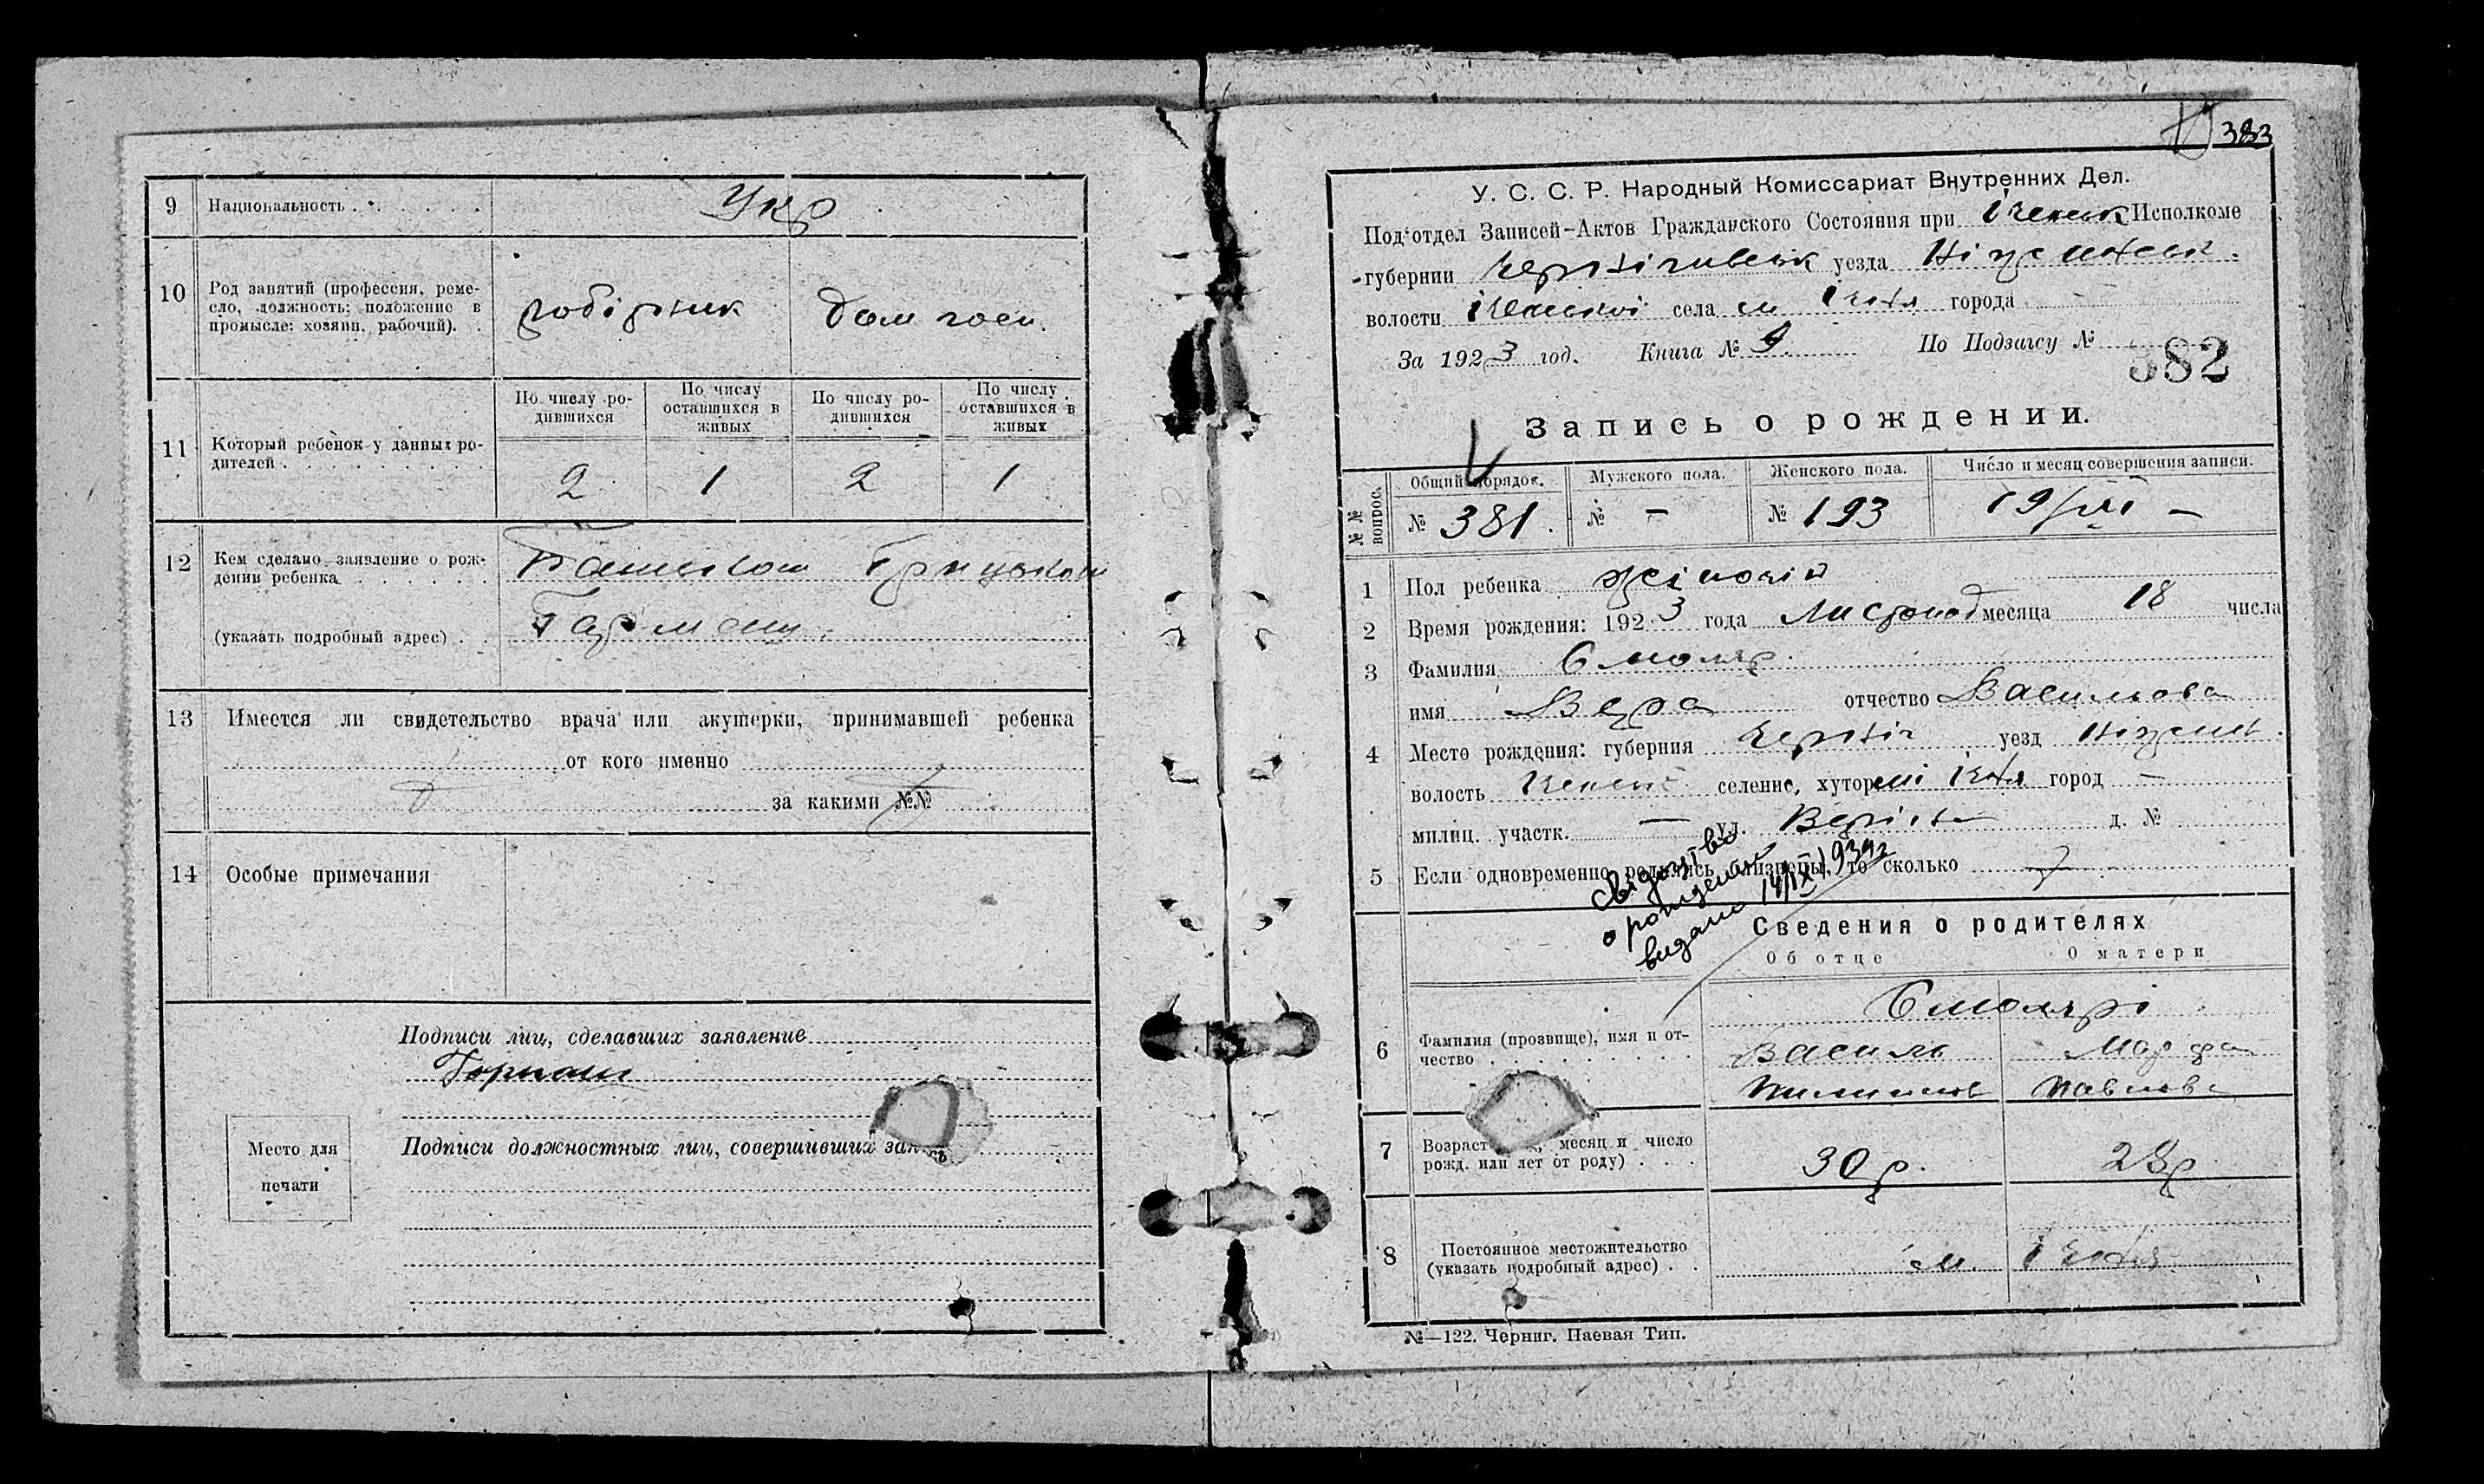 9 Национальность . . . . . . Укр
10 Род занятий (профессия, реме-
сло, должность; положение в
промысле: хозяин, рабочий). .
робірник Дом госп.
11 Который ребенок у данных ро-
дителей . . . . . . . . .
По числу ро-
дившихся
По числу
оставшихся в
живых
По числу ро-
дившихся
По числу
оставшихся в
живых
2 1 2 1
12 Кем сделано заявление о рож-
дении ребенка . . . . . .
Грицьком
(указать подробный адрес) . .
13 Имеется ли свидетельство врача или акушерки, принимавшей ребенка
от кого именно
за какими №№
14 Особые примечания
Подписи лиц, сделавших заявление
Место для
печати
Подписи должностных лиц, совершивших зап
383
У. С. С. Р. Народный Комиссариат Внутренних Дел.
Под'отдел Записей-Актов Гражданского Состояния при Іченськ Исполкоме
губернии Чернігивськ уезда Ніженськ.
волости Іченської села м Ічня города
За 1923 год. Книга № 9 По Подзагсу №
382
Запись о рождении.
№№ вопрос.
Общий порядок. Мужского пола. Женского пола. Число и месяц совершения записи.
№ 381. № — № 193 19/XI —
1 Пол ребенка жіночій
2 Время рождения: 1923 года Листопад месяца 18 числа
3 Фамилия Смоляр
имя Вера отчество Васильова
4 Место рождения: губерния Черніг уезд Ніженс.
волость Іченськ селение, хутор м Ічня город —
милиц. участк. — ул. д. №
5 Если одновременно родились близнецы, то сколько
свідоцтво
о рождении
видано 14/IX 1939г
Сведения о родителях
Об отце О матери
6 Фамилия (прозвище), имя и от-
чество . . . . . . . . .
Смолярі
Василь Марфа
Пилипов Павлова
7 Возраст месяц и число
рожд. или лет от роду) . . .
30 р. 28 р
8 Постоянное местожительство
(указать подробный адрес) . .
м. Ічня
№—122. Черниг. Паевая Тип.